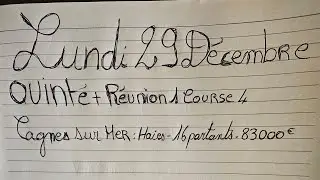 Lundi 29 Décembre
Quinté + Réunion 1 Course 4
Cagnes sur Mer : Haies - 16 partants - 83000€